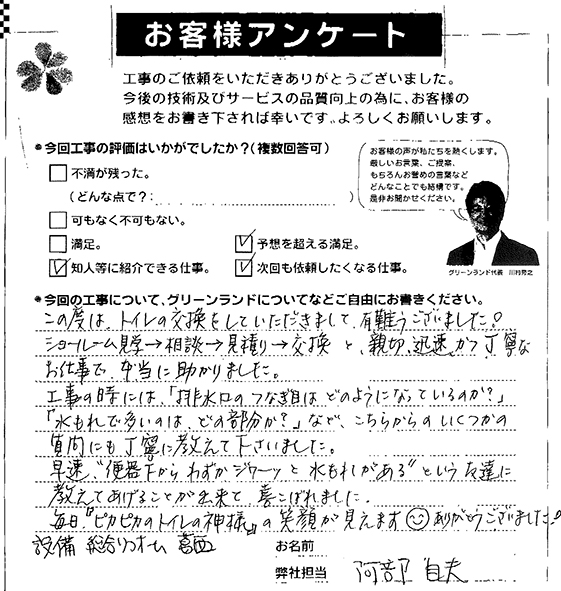 お客様アンケート
工事のご依頼をいただきありがとうございました。
今後の技術及びサービスの品質向上の為に、お客様の
感想をお書き下されば幸いです。よろしくお願いします。
●今回工事の評価はいかがでしたか?(複数回答可)
不満が残った。
(どんな点で?: )
可もなく不可もない。
満足。
予想を超える満足。
知人等に紹介できる仕事。
次回も依頼したくなる仕事。
お客様の声が私たちを熱くします。
厳しいお言葉、ご提案、
もちろんお誉めの言葉など
どんなことでも結構です。
是非お聞かせください。
グリーンランド代表
●今回の工事について、グリーンランドについてなどご自由にお書きください。
この度は、トイレの交換をしていただきまして、有難うございました!
ショールーム見学→相談→見積り→交換 と、親切、迅速、かつ丁寧な
お仕事で、本当に助かりました。
工事の時には、「排水口のつなぎ目は、どのようになっているのか?」
「水もれで多いのは、どの部分か?」など、こちらからのいくつかの
質問にも丁寧に教えて下さいました。
早速、“便器下からわずかジワーッと水もれがある”という友達に
教えてあげることが出来て、喜こばれました。
毎日、『ピカピカのトイレの神様』の笑顔が見えます ありがとうございました!
設備 総合リフォーム 葛西
お名前
弊社担当 阿部